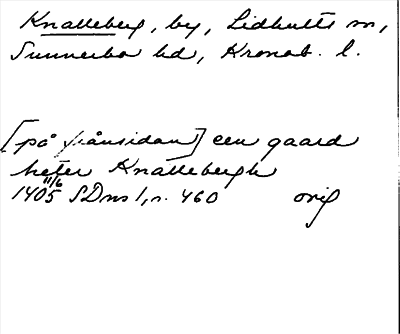 Knalleberg, by, Lidhults sn,
Sunnerbo hd, Kronob. l.
[på frånsidan] een gaard
heter Knallebergh
11/6
1405 SDns 1, n. 460 orig